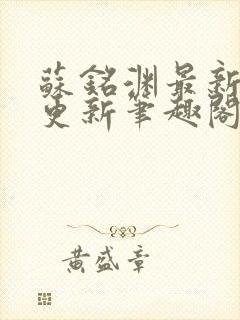 蘇銘淵最新
更新筆趣閣
黃盛章